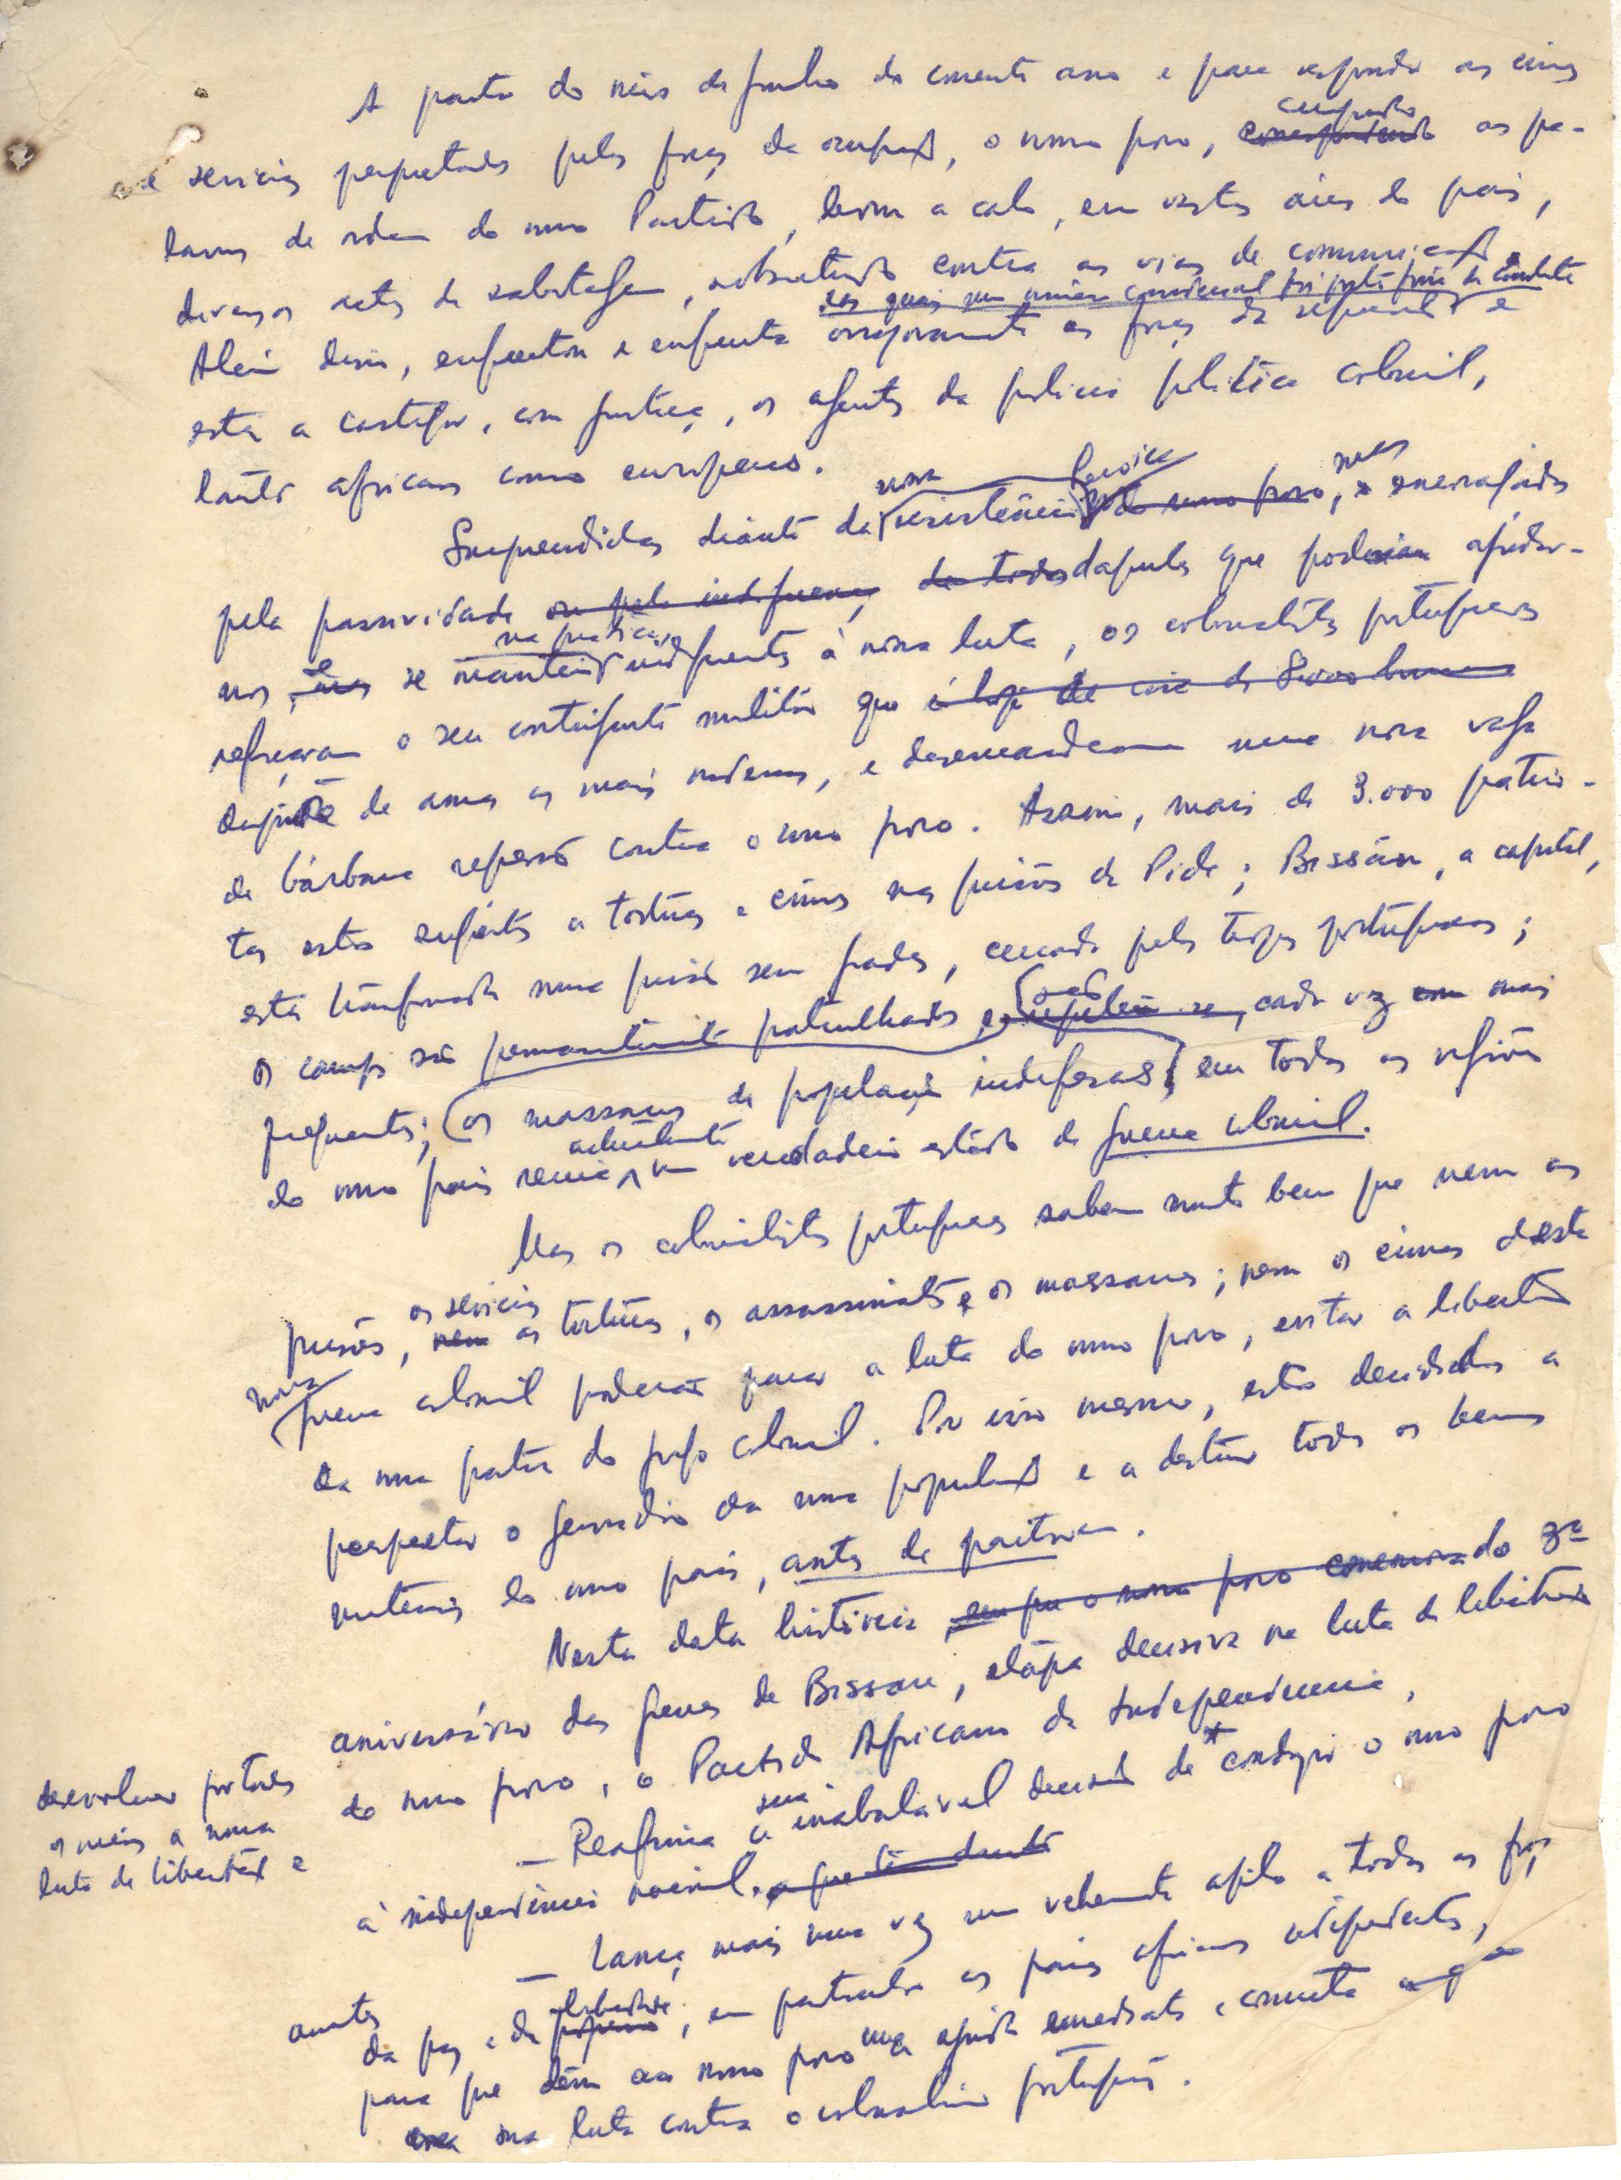 A partir do mês de Junho do corrente ano e para responder aos crimes
e sevícias perpetrados pelas forças de ocupação, o nosso povo, cumprindo correspondendo as pa-
lavras de ordem do nosso Partido, levou a cabo, em vastas áreas do país,
diversos actos de sabotagem, sobretudo contra as vias de comunicação
das quais um número considerável foi posto fora de combate
Além disso, enfrentou e enfrenta corajosamente as forças de repressão e
está a castigar, com justiça, os agentes da polícia política colonial,
tanto africanos como europeus.
Surpreendidos diante da nossa heroica resistência do nosso povo, mas e encorajados
pela passividade ou pela indiferença de todos daqueles que poderiam ajudar-
nos e mas se mantêm na prática indiferentes à nossa luta, os colonialistas portugueses
reforçaram o seu contingente militar que é hoje de cerca de 8.000 homens
dispõe de armas as mais modernas, e desencadearam uma nova vaga
de bárbara repressão contra o nosso povo. Assim, mais de 3.000 patrio-
tas estão sujeitos a torturas e crimes nas prisões da Pide; Bissau, a capital,
está transformada numa prisão sem grades, cercada pelas tropas portuguesas;
os campos são permanentemente patrulhados, e repetem-se, são cada vez com mais
frequentes; os massacres de populações indefesas; em todas as regiões
do nosso país reina actualmente um verdadeiro estado de guerra colonial.
Mas os colonialistas portugueses sabem muito bem que nem as
prisões, os sevícias nem as torturas, os assassinatos e os massacres; nem os crimes desta
nova guerra colonial poderão parar a luta do nosso povo, evitar a libertação
da nossa pátria do jugo colonial. Por isso mesmo, estão decididos a
perpetrar o genocídio da nossa população e a destruir todos os bens
materiais do nosso país, antes de partirem.
Nesta data histórica em que o nosso povo comemora do 3º
aniversário das greves de Bissau, etapa decisiva na luta de libertação
do nosso povo, o Partido Africano da Independência,
– Reafirma a sua inabalável decisão de conduzir o nosso povo
desenvolver por todos
os meios a nossa
luta de libertação e
à independência nacional,
– Lança mais uma vez um veemente apelo a todas as forças
amantes
da paz e da liberdade progresso, em particular os países africanos independentes,
para que dêem ao nosso povo uma ajuda imediata e concreta
na luta contra o colonialismo português.